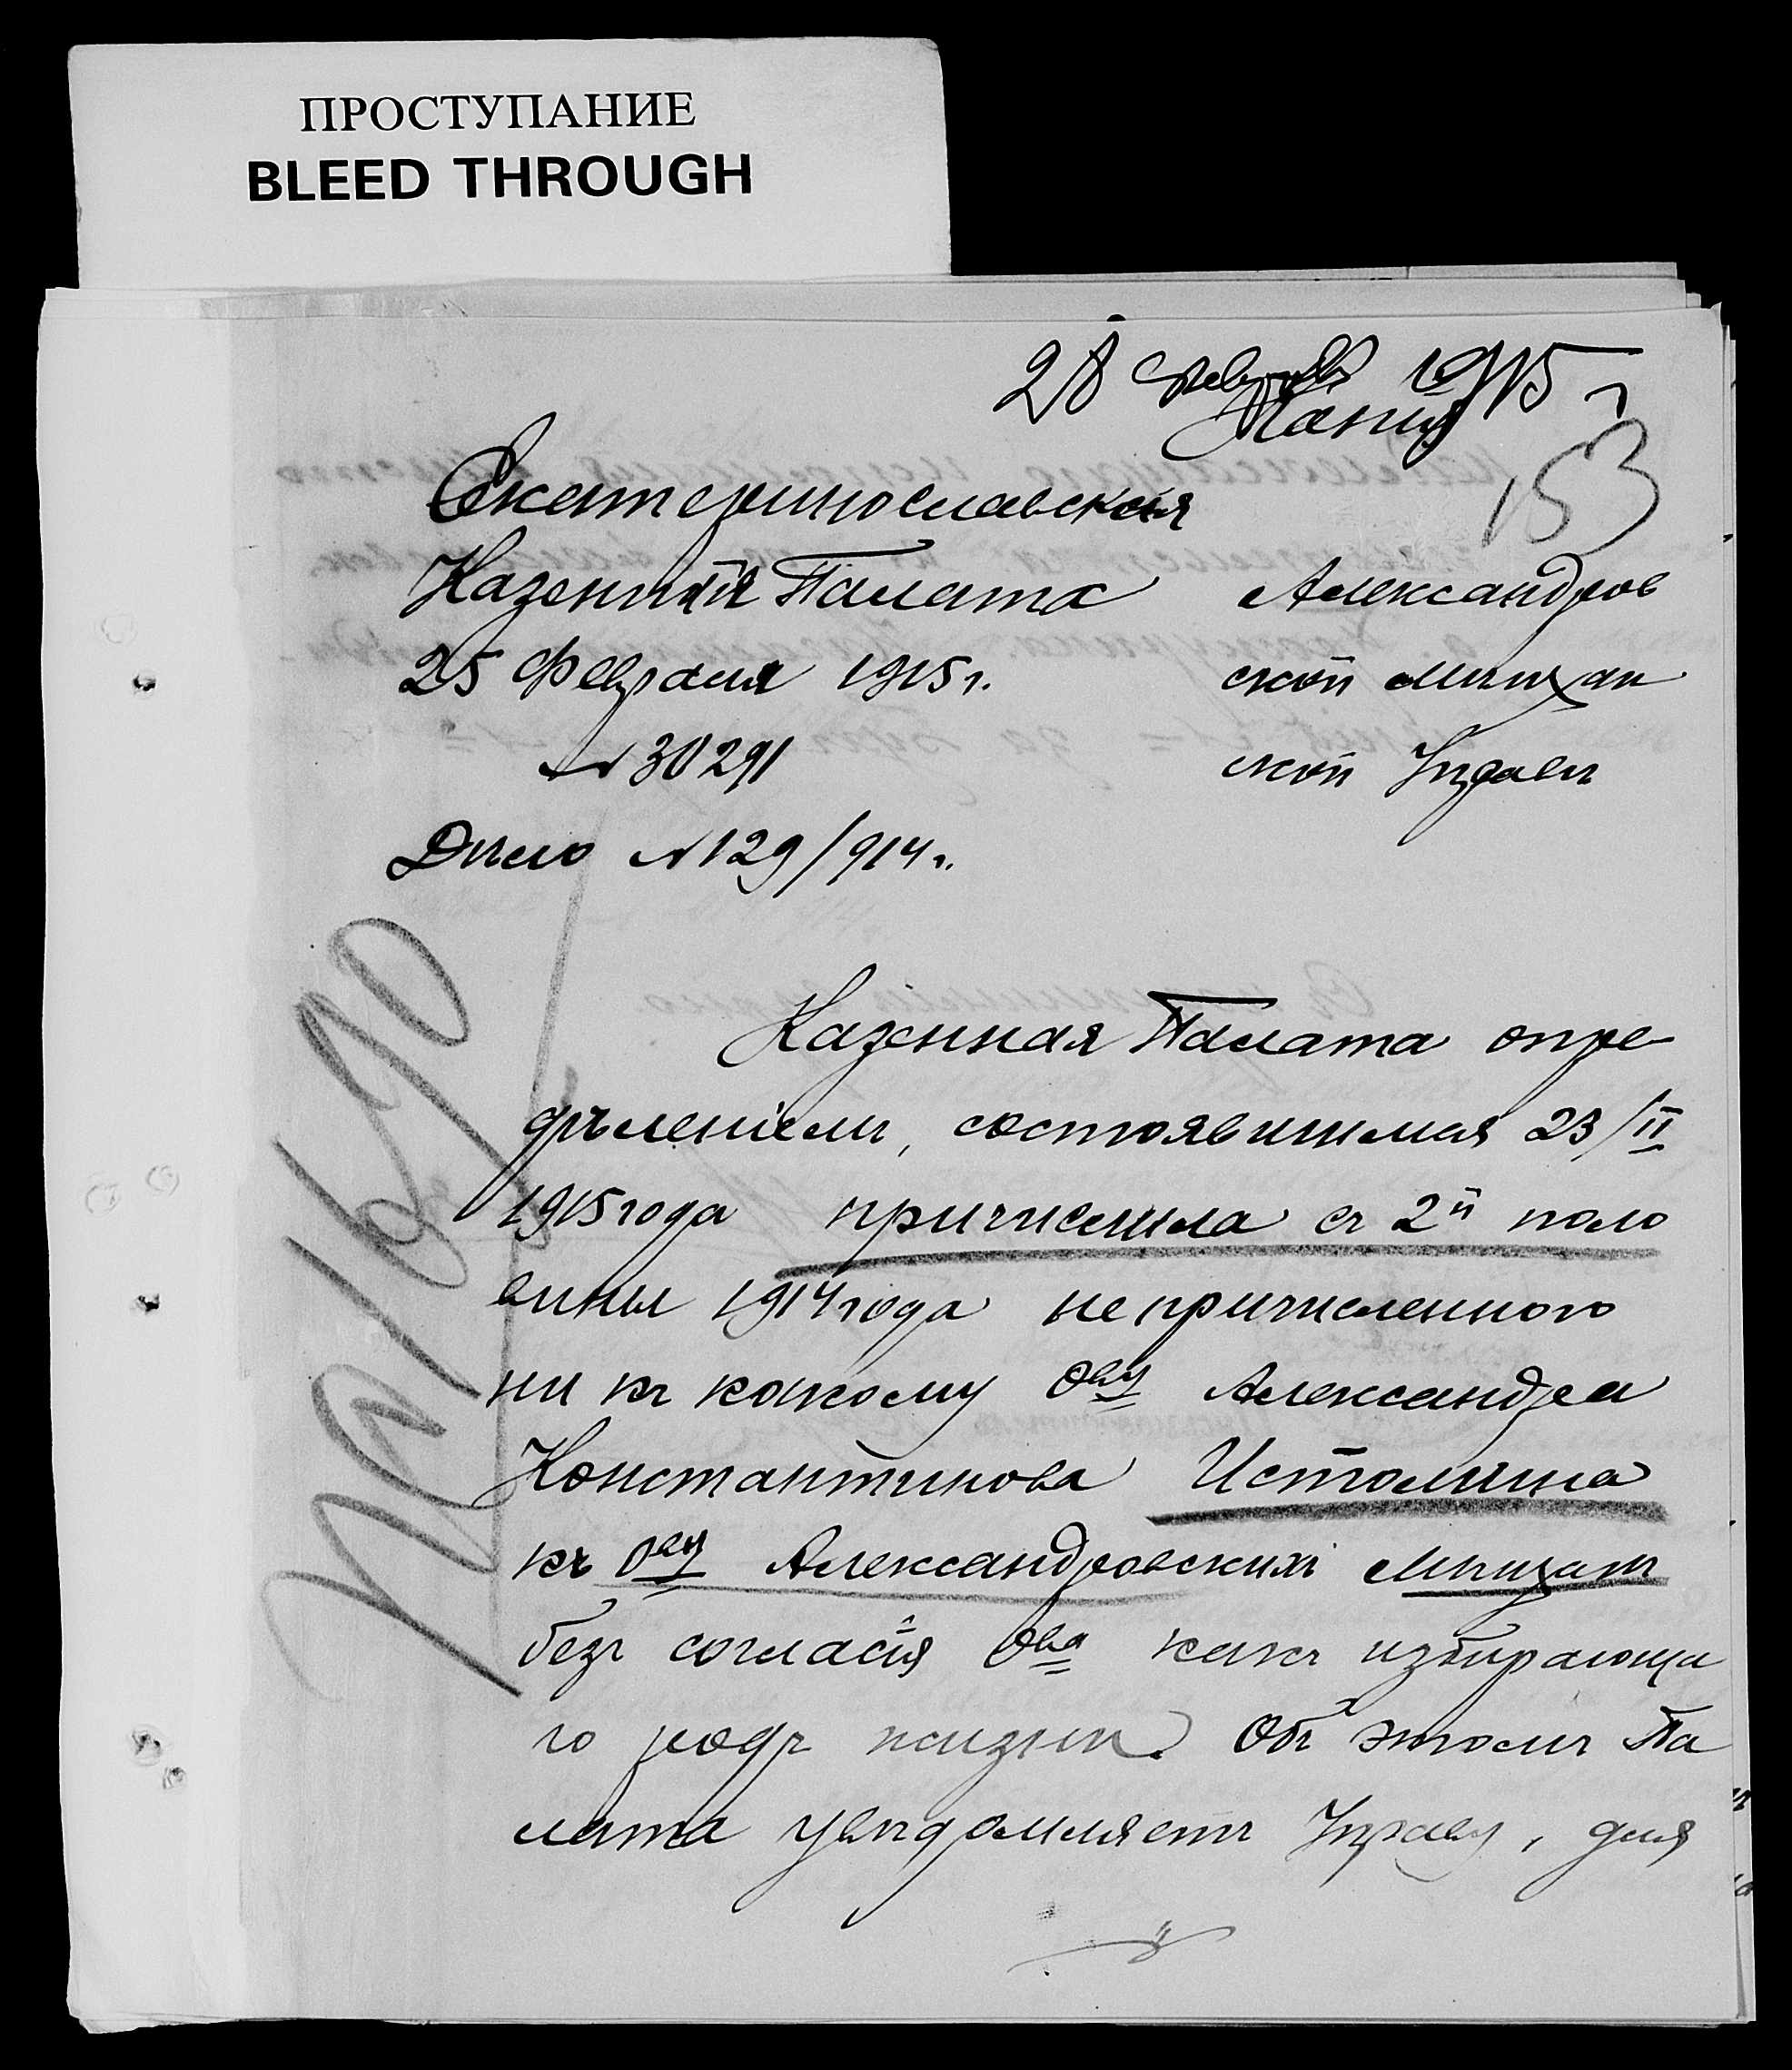 ПРОСТУПАНИЕ
BLEED THROUGH
28 февраля 1915 г
Копия
153
Екатеринославская
Казенная Палата
25 Февраля 1915 г.
№ 30291
Дѣло № 129/914 г.
Александров
ской мѣщан
ской Управѣ
№ 1690
Казенная Палата опре-
дѣленіемъ, состоявшимся 23/II
1915 года причислила съ 2й поло
вины 1914 года непричисленного
ни къ какому Ову Александра
Константинова Истомина
къ Ову Александровскихъ мѣщанъ
безъ согласія Ова какъ избирающа
го родъ жизни. Объ этомъ Па
лата увѣдомляетъ Управу, для